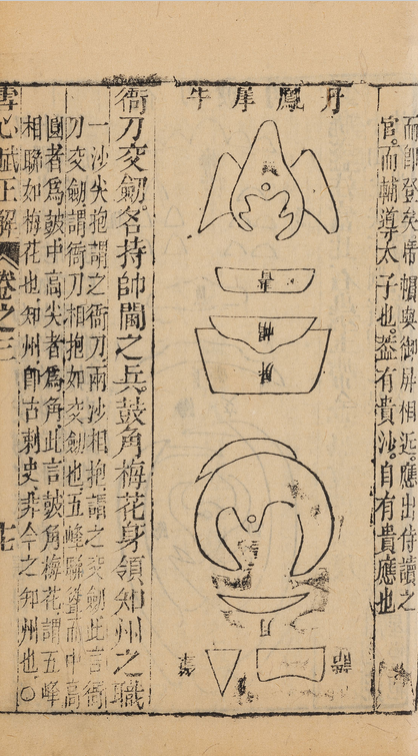 而即登矣席帽與御屏相近應出侍讀之
官而輔導太子也蓋有貴沙自有貴應也
丹鳳
書
帽
屏
月
誥
衙刀交劒各持帥閫之兵鼓角梅花身領知州之職
一沙尖抱謂之衙刀兩沙相抱謂之交劒此言衙
刀交劒謂衙刀相抱如交劒也五峰聯聳而中高
圓者爲鼓中高尖者爲角此言鼓角梅花謂五峰
相聯如梅花也知州即古刺史非今之知州也○
雪心賦正解 卷之三